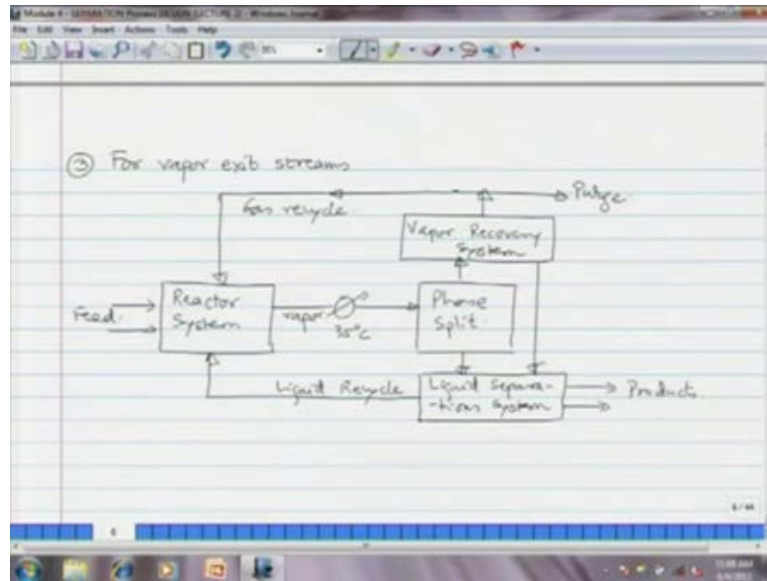 Module 4 - SEPARATION Process DESIGN (LECTURE 2) - Windows Journal
File Edit View Insert Actions Tools Help
③ For vapor exit streams
Purge
Gas recycle
Vapor Recovery
System
Reactor
System
Feed
vapor
35°C
Phase
Split
Liquid Recycle
Liquid Separa-
-tions System
Products
6